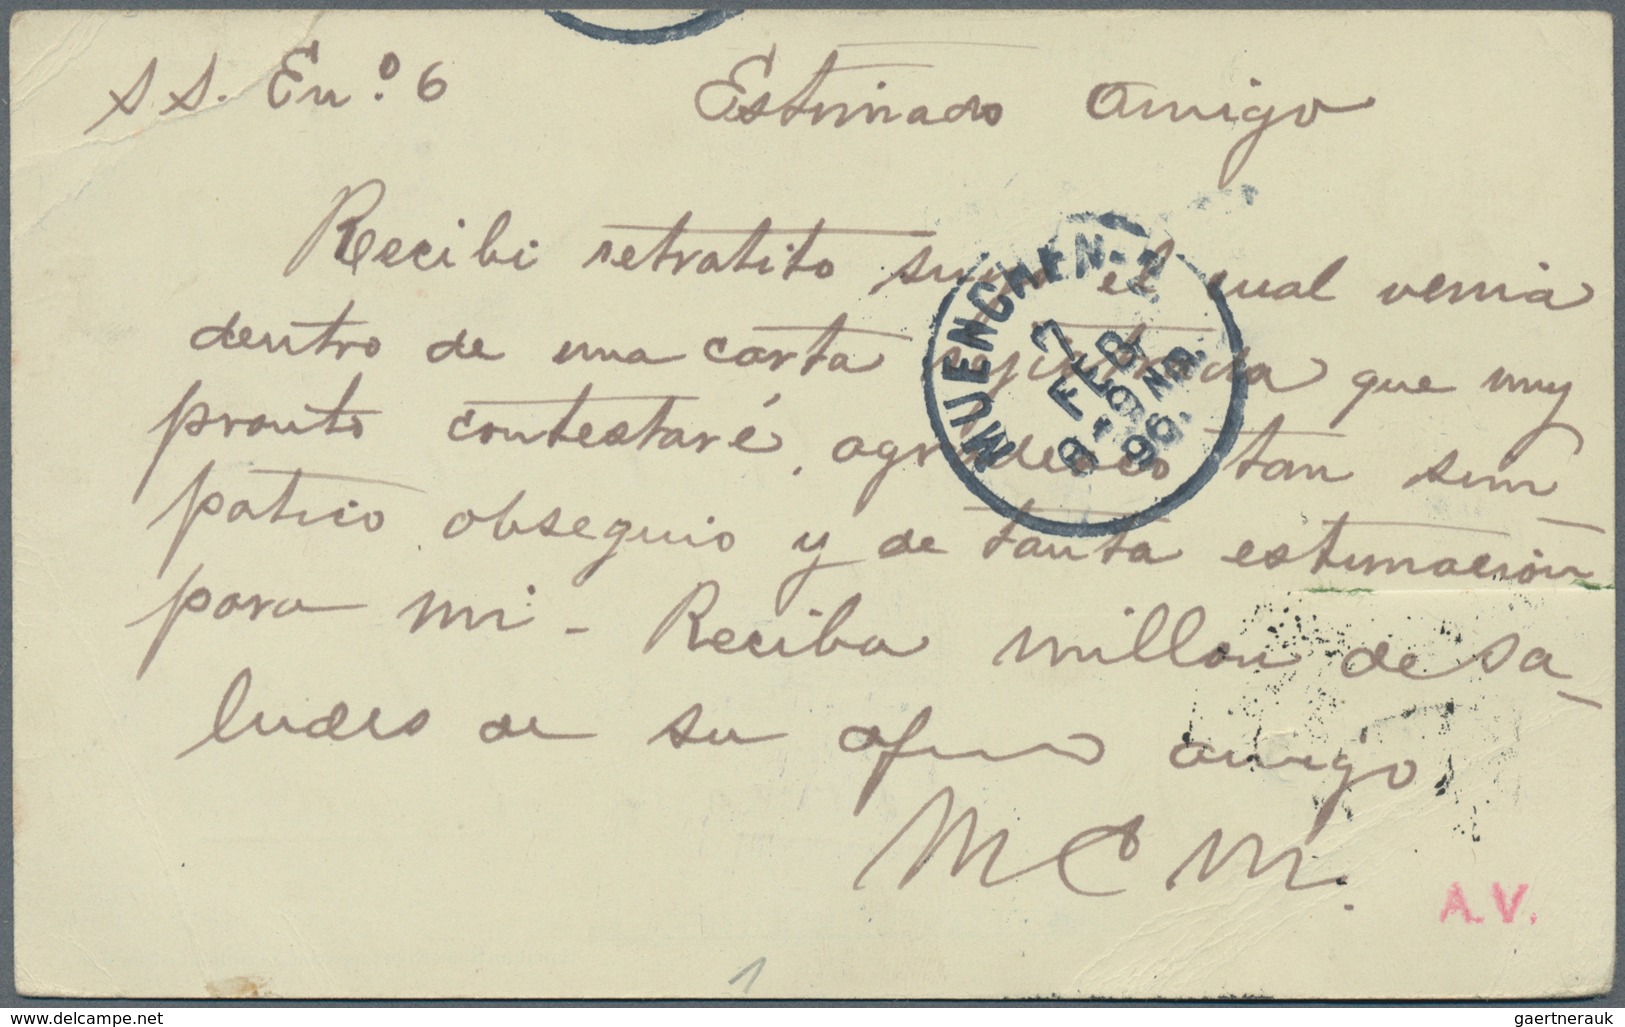 S S. En.º 6 Estimado Amigo
Recibi retratito suyo el cual venia
dentro de una carta que muy
pronto contestaré, agradezco tan sim
patico obsequio y de tanta estimación
para mi - Reciba millon de sa-
ludes de su afmo amigo
M C M.
MUENCHEN. 2.
7
FEB
8-9 NR.
96.
A.V.
1
www.delcampe.com
gaertnerauk